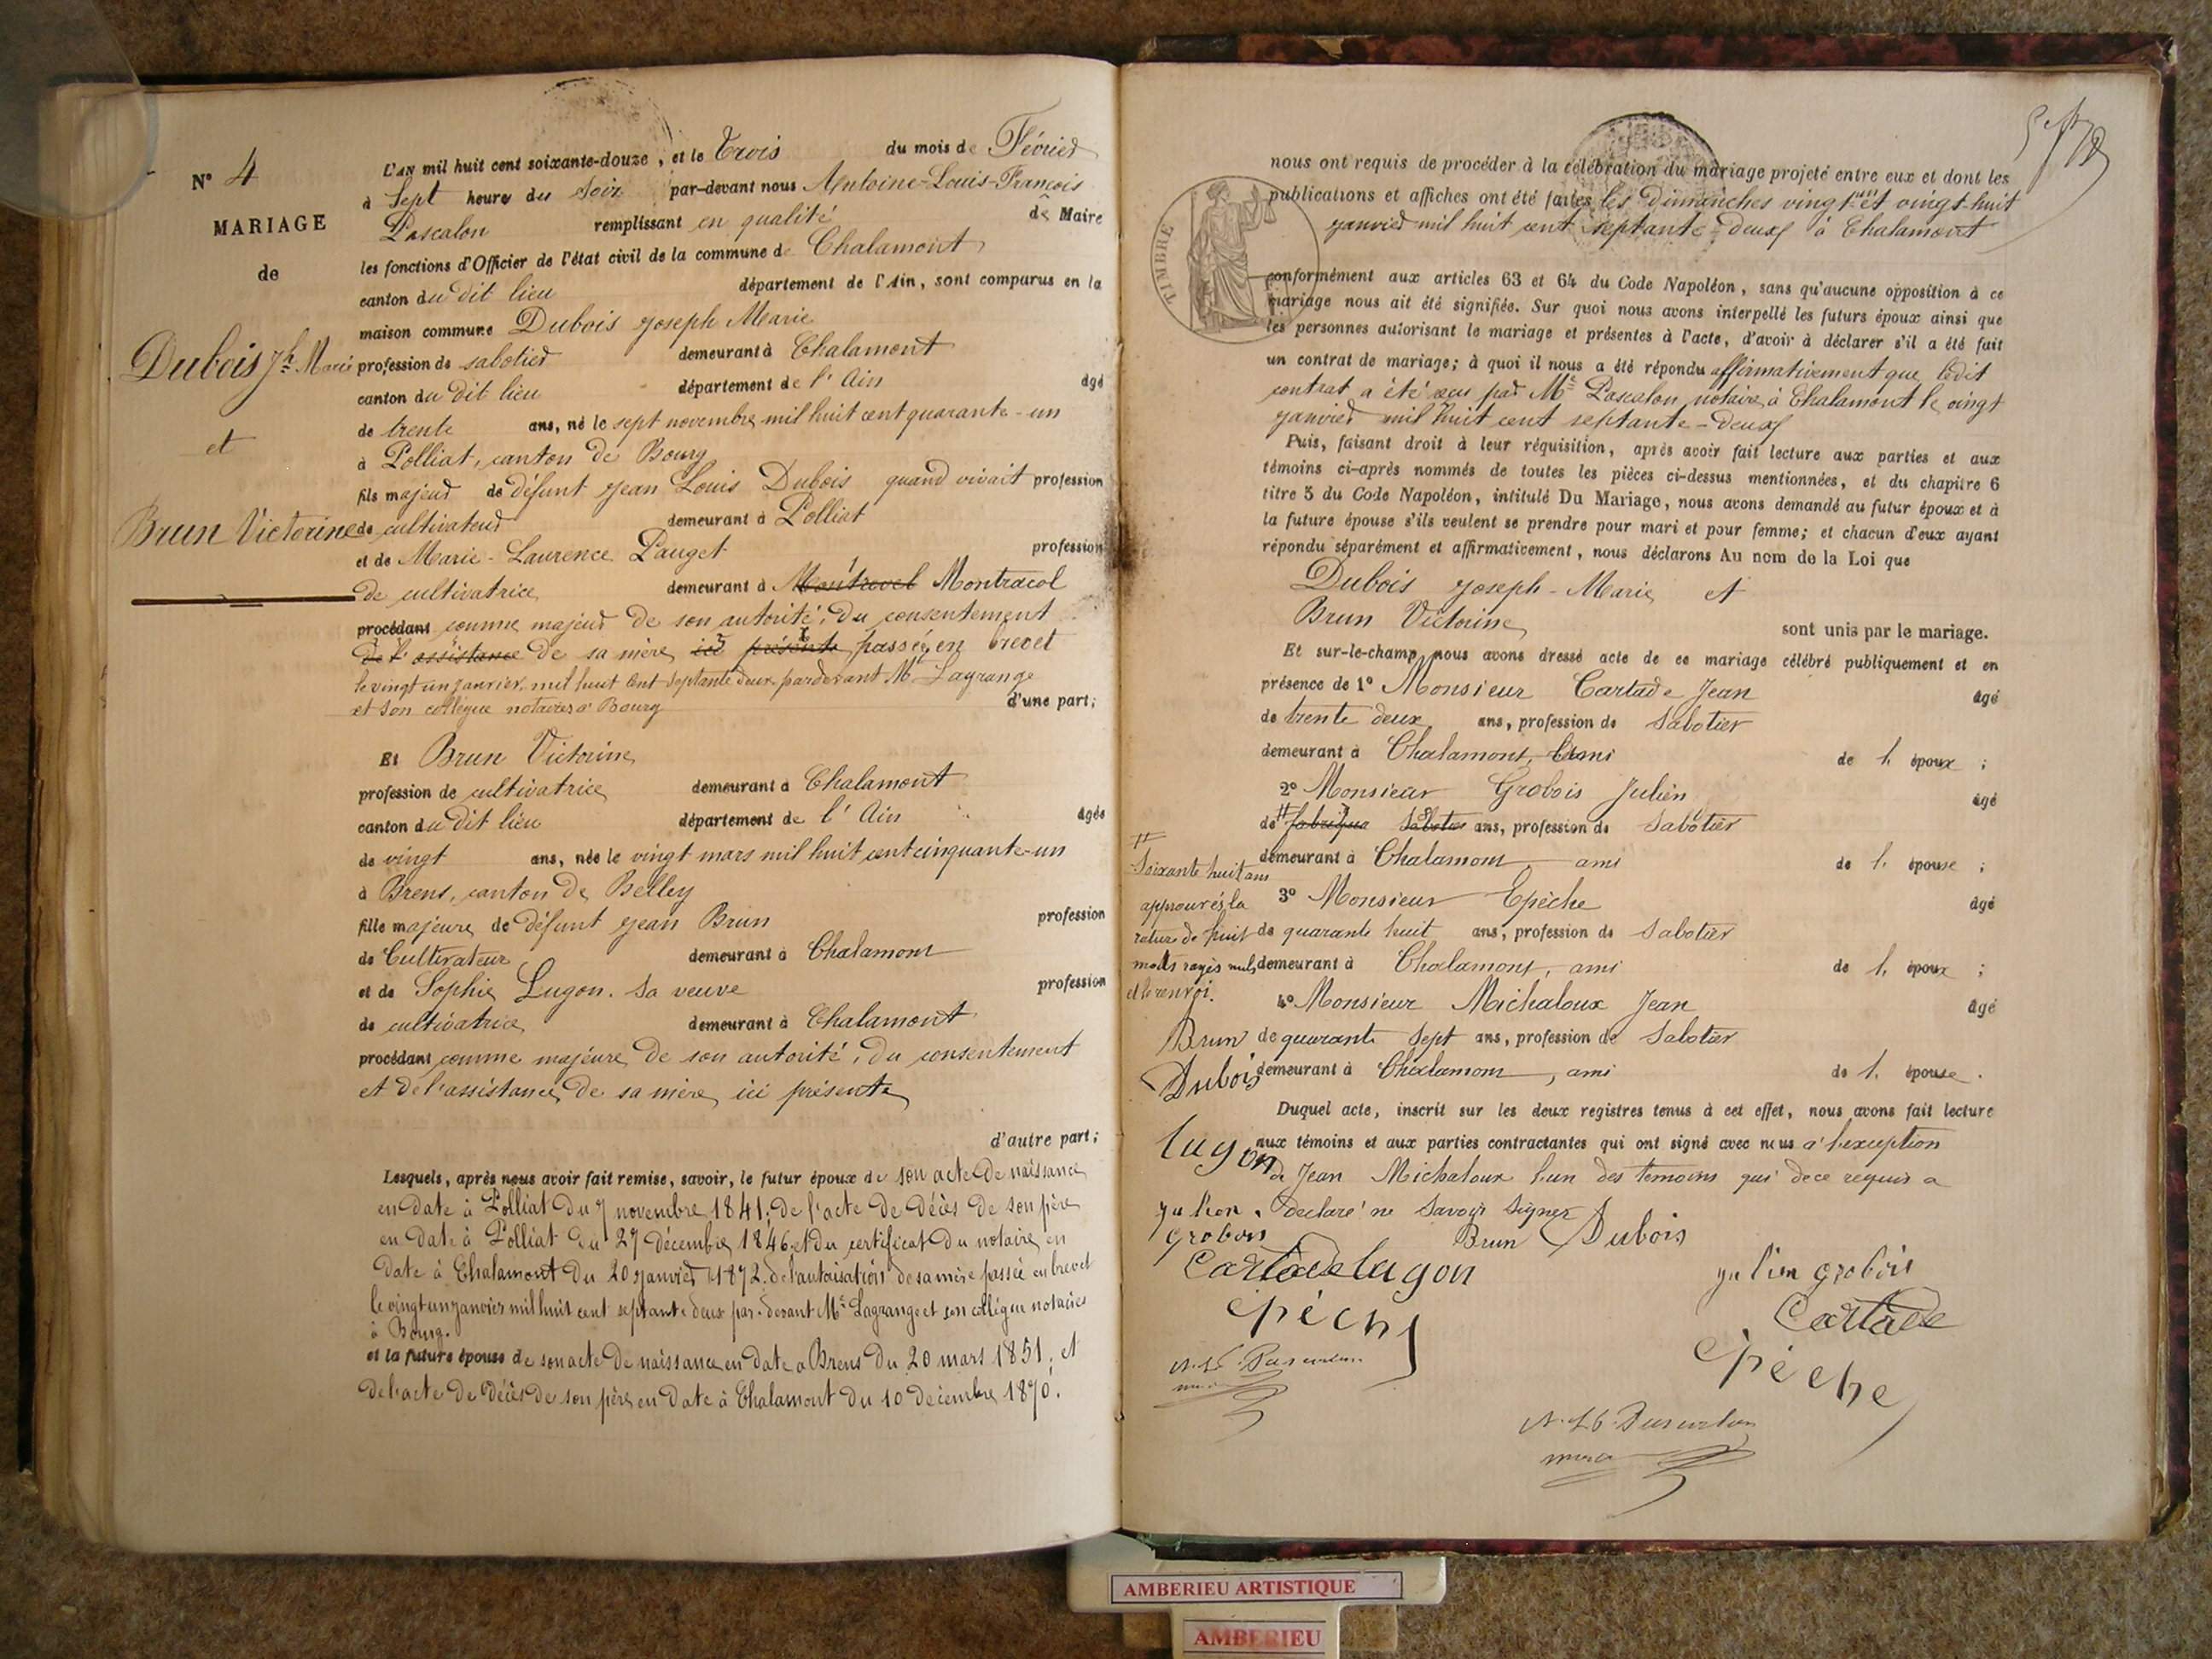 N° 4
MARIAGE
de
Dubois Jh Marie
et
Brun Victorine
L'AN mil huit cent soixante-douze, et le Trois du mois de Février
à Sept heure du Soir par-devant nous Antoine-Louis-François
Pascalon remplissant en qualité de Maire
les fonctions d'Officier de l'état civil de la commune de Chalamont
canton du dit lieu département de l'Ain, sont comparus en la
maison commune Dubois Joseph Marie
profession de sabotier demeurant à Chalamont
canton du dit lieu département de l'Ain âgé
de trente ans, né le sept novembre mil huit cent quarante-un
à Polliat, canton de Bourg
fils majeur de défunt Jean Louis Dubois quand vivait profession
de cultivateur demeurant à Polliat
et de Marie-Laurence Pauget profession
de cultivatrice demeurant à Montrevel Montracol
procédant comme majeur de son autorité, du consentement
de l'assistance de sa mère ici présente passé en brevet
le vingt un janvier mil huit cent septante deux pardevant Me Lagrange
et son collègue notaires à Bourg d'une part;
Et Brun Victorine
profession de cultivatrice demeurant à Chalamont
canton du dit lieu département de l'Ain âgée
de vingt ans, née le vingt mars mil huit cent cinquante-un
à Brens, canton de Belley
fille majeure de défunt Jean Brun profession
de Cultivateur demeurant à Chalamont
et de Sophie Lugon. sa veuve profession
de cultivatrice demeurant à Chalamont
procédant comme majeure de son autorité, du consentement
et de l'assistance de sa mère ici présente
d'autre part;
Lesquels, après nous avoir fait remise, savoir, le futur époux de son acte de naissance
en date à Polliat du 7 novembre 1841; de l'acte de décès de son père
en date à Polliat du 27 décembre 1846, et du certificat du notaire en
date à Chalamont du 20 janvier 1872. de l'autorisation de sa mère passée en brevet
le vingt un janvier mil huit cent septante deux par-devant Me Lagrange et son collègue notaires
à Bourg.
et la future épouse de son acte de naissance en date à Brens du 20 mars 1851; et
de l'acte de décès de son père en date à Chalamont du 10 décembre 1870.
nous ont requis de procéder à la célébration du mariage projeté entre eux et dont les
publications et affiches ont été faites les Dimanches vingt un et vingt-huit
janvier mil huit cent septante-deux à Chalamont
TIMBRE
conformément aux articles 63 et 64 du Code Napoléon, sans qu'aucune opposition à ce
mariage nous ait été signifiée. Sur quoi nous avons interpellé les futurs époux ainsi que
les personnes autorisant le mariage et présentes à l'acte, d'avoir à déclarer s'il a été fait
un contrat de mariage; à quoi il nous a été répondu affirmativement que ledit
contrat a été reçu par Me Pascalon notaire à Chalamont le vingt
janvier mil huit cent septante-deux
Puis, faisant droit à leur réquisition, après avoir fait lecture aux parties et aux
témoins ci-après nommés de toutes les pièces ci-dessus mentionnées, et du chapitre 6
titre 5 du Code Napoléon, intitulé Du Mariage, nous avons demandé au futur époux et à
la future épouse s'ils veulent se prendre pour mari et pour femme; et chacun d'eux ayant
répondu séparément et affirmativement, nous déclarons Au nom de la Loi que
Dubois Joseph-Marie et
Brun Victorine sont unis par le mariage.
Et sur-le-champ nous avons dressé acte de ce mariage célébré publiquement et en
présence de 1° Monsieur Cartade Jean âgé
de trente deux ans, profession de Sabotier
demeurant à Chalamont, ami de l. époux ;
2° Monsieur Grobois Julien âgé
de # ans, profession de Sabotier
demeurant à Chalamont ami de l. épouse ;
3° Monsieur Epèche âgé
de quarante huit ans, profession de Sabotier
demeurant à Chalamont, ami de l. époux ;
4° Monsieur Michaloux Jean âgé
de quarante Sept ans, profession de Sabotier
demeurant à Chalamont, ami de l. épouse.
#
Soixante huit ans
approuvés la
rature de huit
mots rayés nuls
et le renvoi.
Brun
Dubois
lugon
julien
grobois
Duquel acte, inscrit sur les deux registres tenus à cet effet, nous avons fait lecture
aux témoins et aux parties contractantes qui ont signé avec nous à l'exception
de Jean Michaloux l'un des temoins qui de ce requis a
declaré ne Savoir Signer
Brun Dubois
Cartade lugon julien grobois
épéche Cartade
épéche
AMBERIEU ARTISTIQUE
AMBERIEU